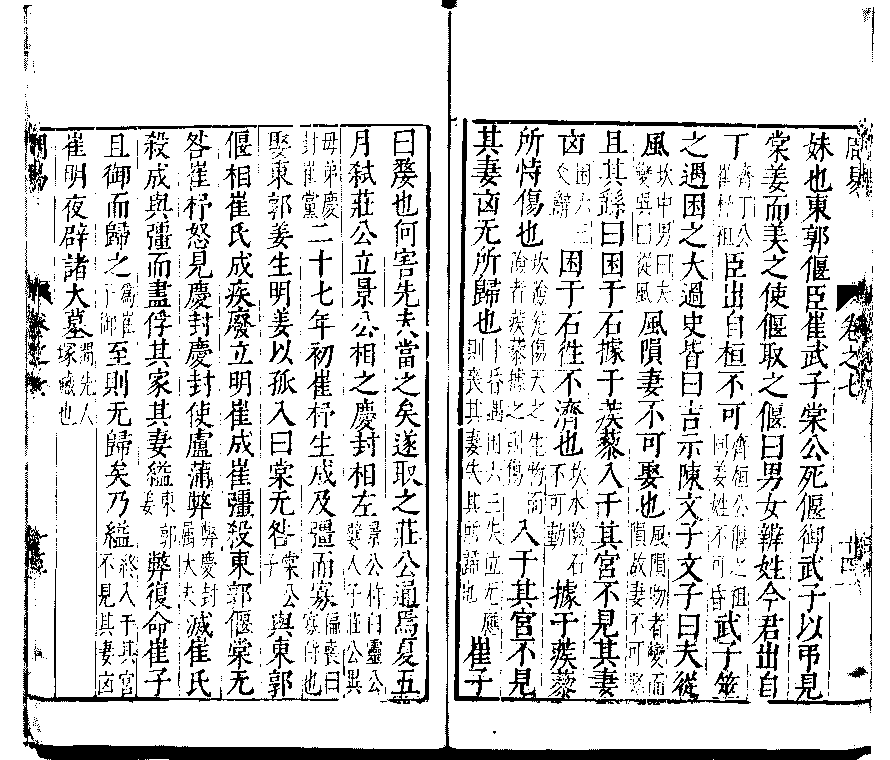 周易 卷之七 十四
妹也東郭偃臣崔武子棠公死偃御武子以弔見
棠姜而美之使偃取之偃曰男女辨姓今君出自
丁齊丁公崔杼祖臣出自桓不可齊桓公偃之祖同姜姓不可昏武子筮
之遇困之大過史皆曰吉示陳文子文子曰夫從
風坎中男曰夫變巽曰從風風隕妻不可娶也風隕物者變而隕故妻不可娶
且其繇曰困于石據于蒺藜入于其宮不見其妻
凶困六三爻辭困于石徃不濟也坎水險石不可動據于蒺藜
所恃傷也坎險兌傷天之生物而險者蒺藜據之則傷入于其宮不見
其妻凶无所歸也卜昏遇困六三失立无應則喪其妻失其所歸也崔子
曰嫠也何害先夫當之矣遂取之莊公通焉夏五
月弒莊公立景公相之慶封相左景公杵臼靈公嬖人子莊公異
母弟慶封崔黨二十七年初崔杼生成及彊而寡偏喪曰寡寡特也
娶東郭姜生明姜以孤入曰棠无咎棠公子與東郭
偃相崔氏成疾廢立明崔成崔彊殺東郭偃棠无
咎崔杼怒見慶封慶封使盧蒲弊弊慶封屬大夫滅崔氏
殺成與彊而盡俘其家其妻縊東郭姜弊復命崔子
且御而歸之為崔子御至則无歸矣乃縊終入于其宮不見其妻凶
崔明夜辟諸大墓開先人冢藏也
周易